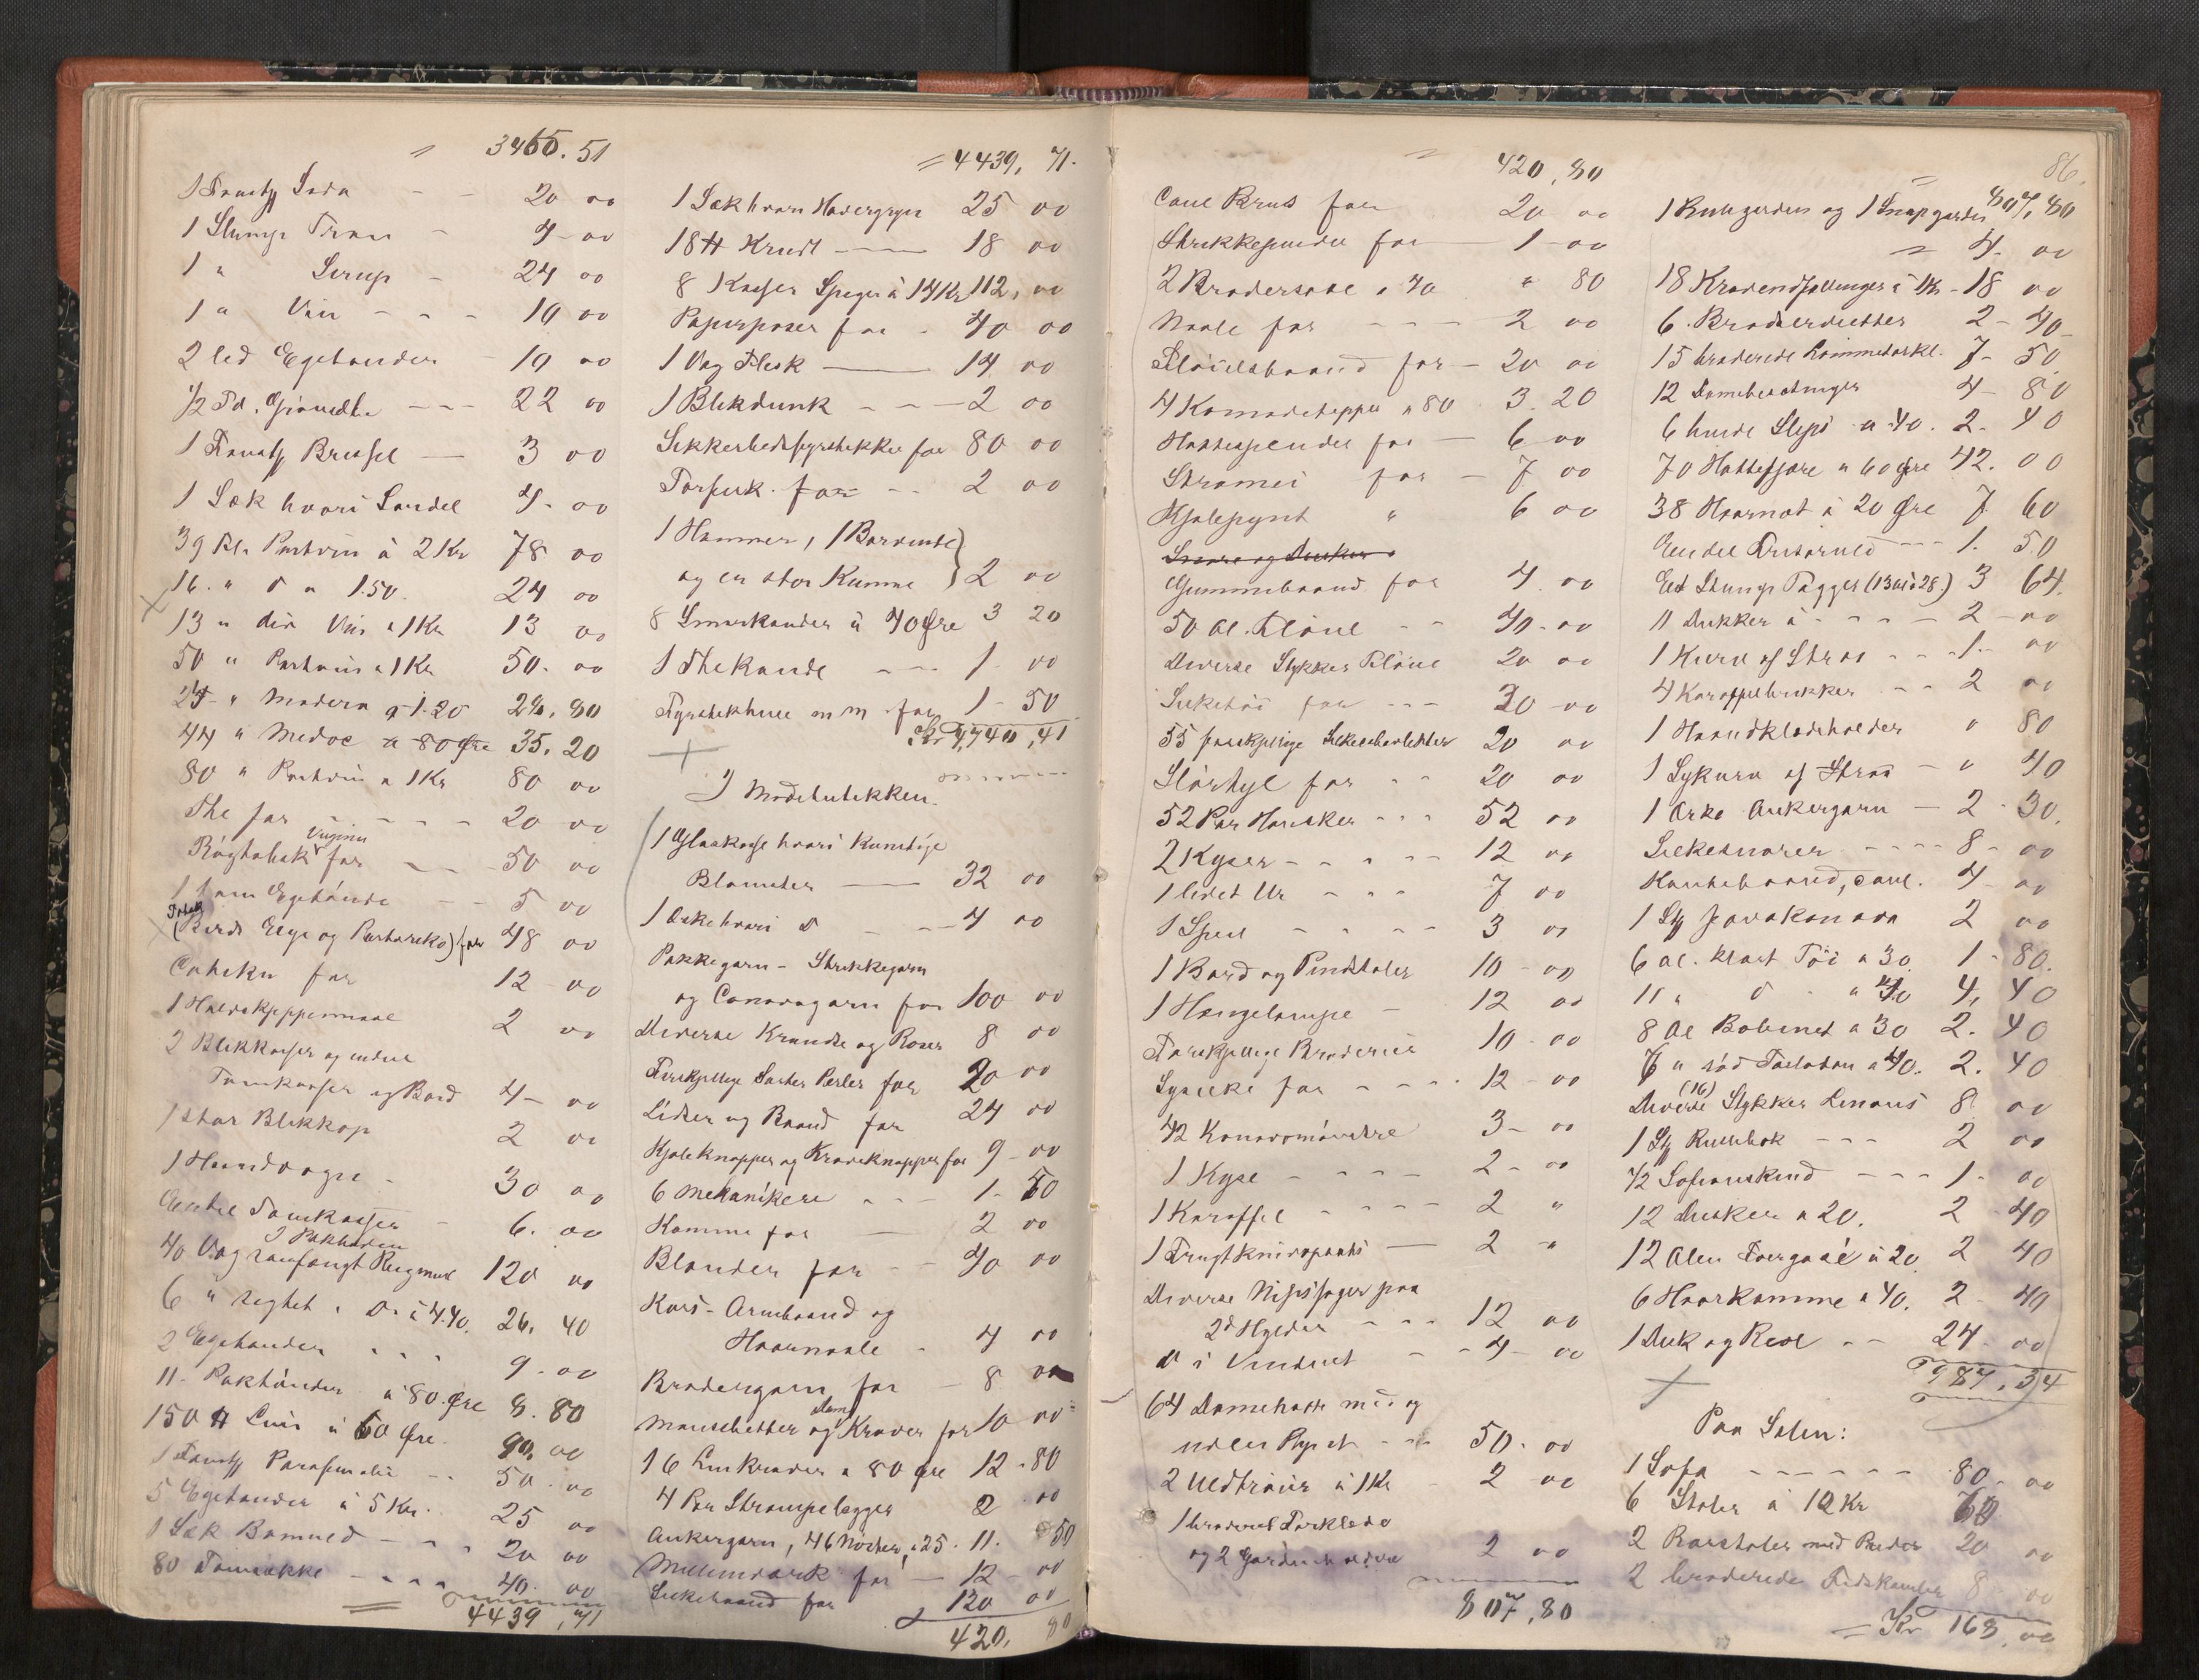 = 3465.51
1 Anstf Soda - - 20 00
1 Slump Tran - 4 00
1 " Sirup - 24 00
1 " Vin - - - 10 00
2 led Egetønder - 10 00
1/2 Td. - - - 22 00
1 Brissel — 3 00
1 Sæk hvori Sandel 4 - 00
39 Fl. Portvin à 2 Kr 78 00
16 " D " 1.50. 24 00
13 " div Vin a 1 Kr 13 00
50 " Portvin a 1 Kr 50 - 00
24 " Madera a 1.20 28,80
44 " Medoc a 80 Øre 35.20
80 " Portvin a 1 Kr 80 00
The for - - - - 20 00
Røgtobak Virginia for - - 50 00
1 tom Egetønde - - 5 00
Tobak
(Birds Eige og Portoriko) for 48 00
for 12 - 00
1 Halvskjeppemaal 2 00
2 Blikkasser og endel
Tomkasser og Bord 4 - 00
1 stor Blikkop 2 00
1 Haandvogn - 30 00
Endel Tomkasser - 6. 00
I Pakboden
40 Vog Rugmel 120 00
6 " sigtet " Do à 4.40. 26,40
2 Egetønder - - - 9 - 00
11 - Paktønder a 80 Øre 8.80
150 ℔ Lin à 60 Øre 90,00
1 - - 50 - 00
5 Egetønder à 5 Kr. 25 00
1 Sæk Bomuld - - - 20 00
80 Tomsække - - - 40. 00
4439,71
= 4439,71.
1 Sæk hvori Havregryn 25 00
18 ℔ Krudt — 18 00
8 Kasser Spiger à 14 Kr 112,00
Papirposer for - 40 00
1 Vog Flesk — 14 00
1 Blikdunk - - - 2 00
Sikkerhedsfyrstikker for 80 00
for - - 2 00
1 Hammer, 1 Bordvægt
og en stor Kumme } 2 00
8 Smørkander à 40 Øre 3 20
1 Thekande - - - 1 - 00
Fyrstikhuse m m for 1 - 50
Kr 4,740,41
I Modebutikken.
1 Glaskasse hvori Kunstige
Blomster — 32 00
1 Æske hvori D - - - 4 00
Pakkegarn - Strikkegarn
og Canovagarn for 100 00
Diverse Krandse og Roser 8 00
Forskjellige Sorter Perler for 20 00
Lidser og Baand for 24 00
Kjoleknapper og Kraveknapper for 9 - 00
6 Mekanikere - - - 1 - 50
Kamme for — 2 00
Blonder for - - 40 00
Kors - Armbaand og
Haarnaale - 4 00
Brodergarn for - 8 00
Manschetter og Dam Kraver for 10 00
16 Linkraver a 80 Øre 12 - 80
4 Par Strømpelægger 2 - 00
Ankergarn, 46 Nøster, à 25. 11. 50
for — 12 - 00
Silkebaand for 120 00
420,80
= 420,80
Caul Brus for 20 00
Strikkepinder for — 1 - 00
2 Brodersaxe a 40 " 80
Naale for - - - 2 00
Fløielsbaand for - 20 00
4 Komodetepper a 80 3.20
Hattespender for — 6 00
Stramei for - 7 00
Kjolepynt " 6 00
Snore og Dusker
Gummibaand for 4 00
50 Al. Fløiel - - 40 - 00
Diverse Stykker Fløiel 20 00
Silketøi for - - - 30 - 00
55 forskjellige 20 00
Slørtyl for - - 20 00
52 Par Hansker - - - 52 00
2 Kyser - - - - - 12 00
1 lidet Ur - - - 7 00
1 Speil - - - - - 3 00
1 Bord og Pindstoler 10 - 00
1 Hængelampe - 12 00
Forskjellige Broderier 10 - 00
Sysilke for - - - - 12 - 00
42 Kanavamønstre 3 - 00
1 Kyse - - - - - 2 - 00
1 Karaffel - - - - 2 "
1 Frugtknivopsats — 2 "
Diverse Nipssager paa
2d Hylder - - - 12 00
D i Vinduet - - - 4 - 00
64 Damehatte med og
uden Pynt - - - 50 - 00
2 Uldtrøier à 1 Kr - 2 00
1 broderet Forklæde
og 2 Gardinholdere 2 00
807,80
86.
= 807,80
1 Rullegardin og 1 Snapgardin
= 4. 00
18 Kravendfattninger à 1 Kr - 18 00
6. 2 - 40 -
15 broderede Lommetørkl. 7 - 50
12 Damebesætninger 4 - 80
6 hvide Slips a 40. 2. 40
70 Hattefjære a 60 Øre 42. 00
38 Haarnæt à 20 Øre 7 60
Endel - - - 1. 50
Et Slump Tøgger (13 Al à 28.) 3 64.
11 Dukker à - - - - 2 - 00
1 Kurv af Straa - - - 1. - 00
4 Karaffelbrikker - - 2 00
1 Haandklædeholder " 80
1 Sykurv af Straa - " 40
1 Æske Ankergarn — 2 - 30.
Silkesnorer - - - - 8 - 00
4 - 00
1 St Javakanava 2 00
6 al. klart Tøi a 30. 1 - 80.
11 " D - a 40 4,40
8 Al Bobinet a 30 2. 40
6 " rød Tarlatan a 40. 2. 40
Diverse (16) Stykker Linons 8 00
1 St - - - 2 00
1/2 Safianskind - - - 1 - 00
12 Dusker a 20. 2 - 40
12 Alen à 20. 2 40
6 Haarkamme a 40. 2 - 40
1 Disk og Reol - - 24 - 00
987,34
Paa Salen:
1 Sofa - - - - - - 80 - 00
6 Stoler à 10 Kr 60
2 Rorstoler med Puder 20 00
2 broderede Fodskamler 8 - 00
= Kr 168,00